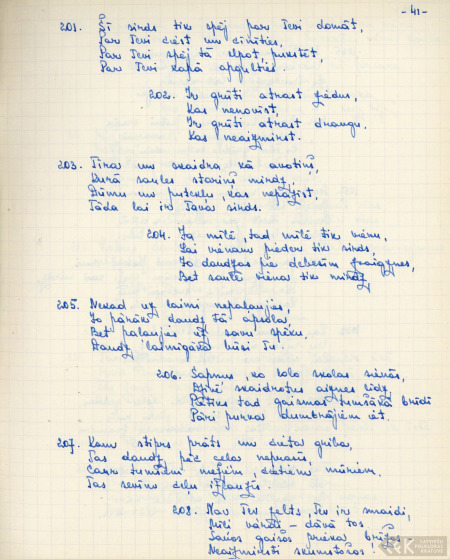 -41-
201. Šī sirds tik spēj par Tevi domāt,
Par Tevi ciest un cīnīties,
Par Tevi spēj tā elpot, pukstēt,
Par Tevi kapā apgulties.
202. Ir grūti atrast ziedus,
Kas nenovīst,
Ir grūti atrast draugu,
Kas neaizmirst.
203. Tīra un skaidra kā avotiņš,
Kurā saules stariņš mirdz,
Dūmu un putekļu, kas nepazīst,
Tāda lai ir Tava sirds.
204. Ja mīlē, tad mīlē tik vienu,
Lai vienam pieder tik sirds,
Jo daudzas pie debesīm zvaigznes,
Bet saule viena tik mirdz.
205. Nekad uz laimi nepaļaujies,
Jo pārāk daudz tā apsola,
Bet paļaujies uz savu spēku,
Daudz laimīgāka būsi Tu.
206. Sapņus, ko loloj skolas sienās,
Dzīvē skaidrotus aiznes līdz,
Patiks tad gaismas tumšākā brīdī
Pāri purva dumbrājiem iet.
207. Kam stiprs prāts un cieta griba,
Tas daudz pēc ceļa neprasīs,
Caur tumšiem mežiem, cietiem mūriem
Tas sevim ceļu izlauzīs.
208. Nav Tev zelts, Tev ir smaidi,
Mīļi vārdi - dāvā tos,
Savos gaišos prieka brīžos
Neaizmirsti skumstošos.
LATVIEŠU
FOLKLORAS
KRĀTUVE